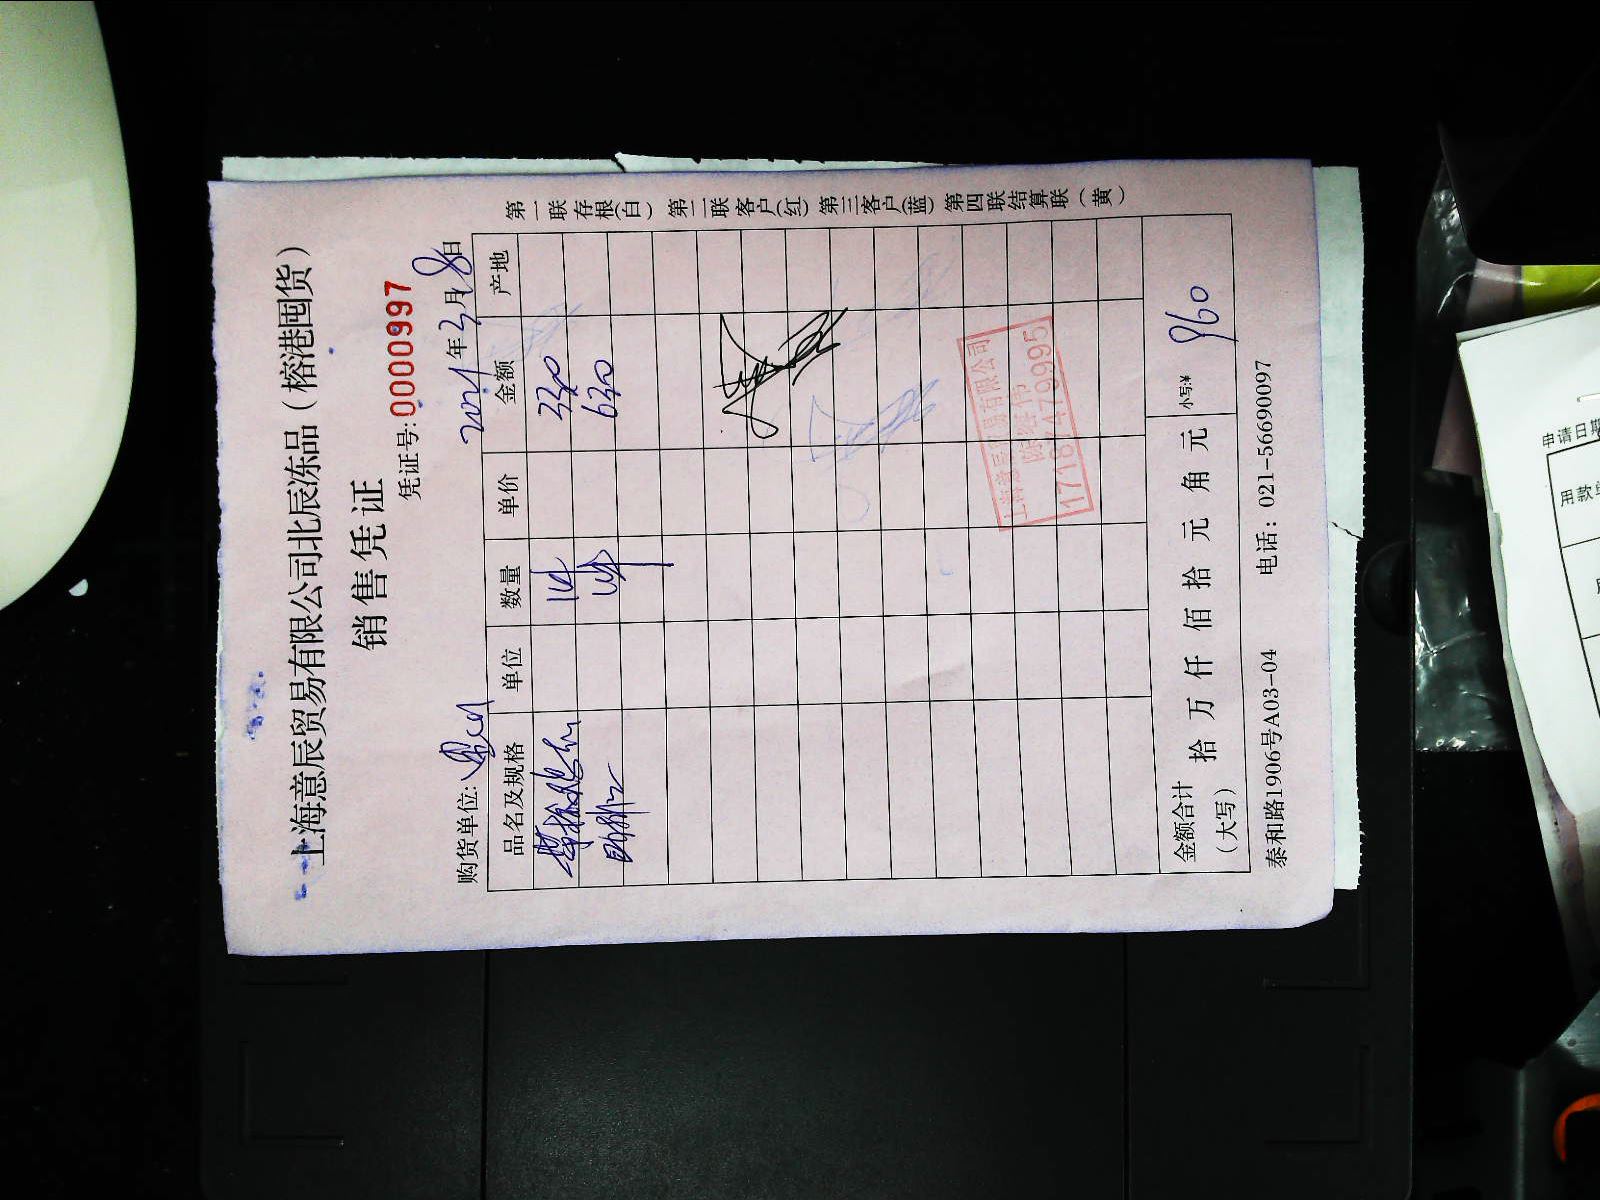 上海意辰贸易有限公司北辰冻品（榕港囤货）
销售凭证
凭证号:0000997
购货单位:
年3月8日
品名及规格 单位 数量 单价 金额 产地
1件 330
630
金额合计（大写） 拾 万 仟 佰 拾 元 角 元 小写:¥ 960
泰和路1906号A03-04 电话：021-56690097
第一联存根(白) 第二联客户(红) 第三客户(蓝) 第四联结算联(黄)
上海意辰贸易有限公司
17187479995
申请日期
用款单